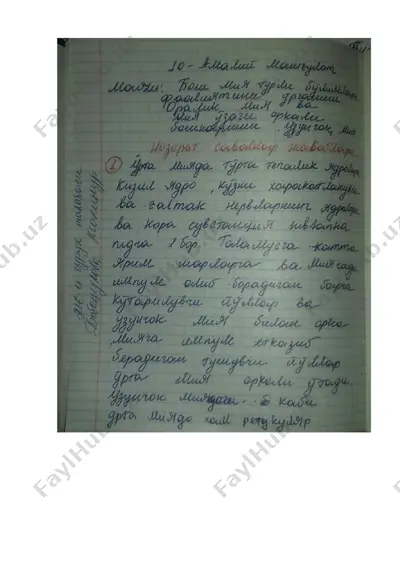 10 - Амалий машғулот
Мавзу: Бош мия турли бўлимлари
фаолиятини ўрганиш
Оралиқ мия ва
мия узаги орқали
бошқарилиши. Узунчоқ мия
Назорат саволлар жавоблари
1 Ўрта мияда тўрта тепалик ядролари
Кизил ядро, кўзни харакатлантирувчи
ва галтак нервларнинг ядролари
ва кора субстанция
бор. Таламусга катта
ярим шарларга ва миячада
импулс олиб борадиган барча
кўтарилувчи йўллар ва
узунчок мия билан орка
мияга импулс етказиб
берадиган тушувчи йўллар
ўрта мия оркали утади.
Узунчок миядаги каби
ўрта мияда хам ретикуляр
FaylHub.uz